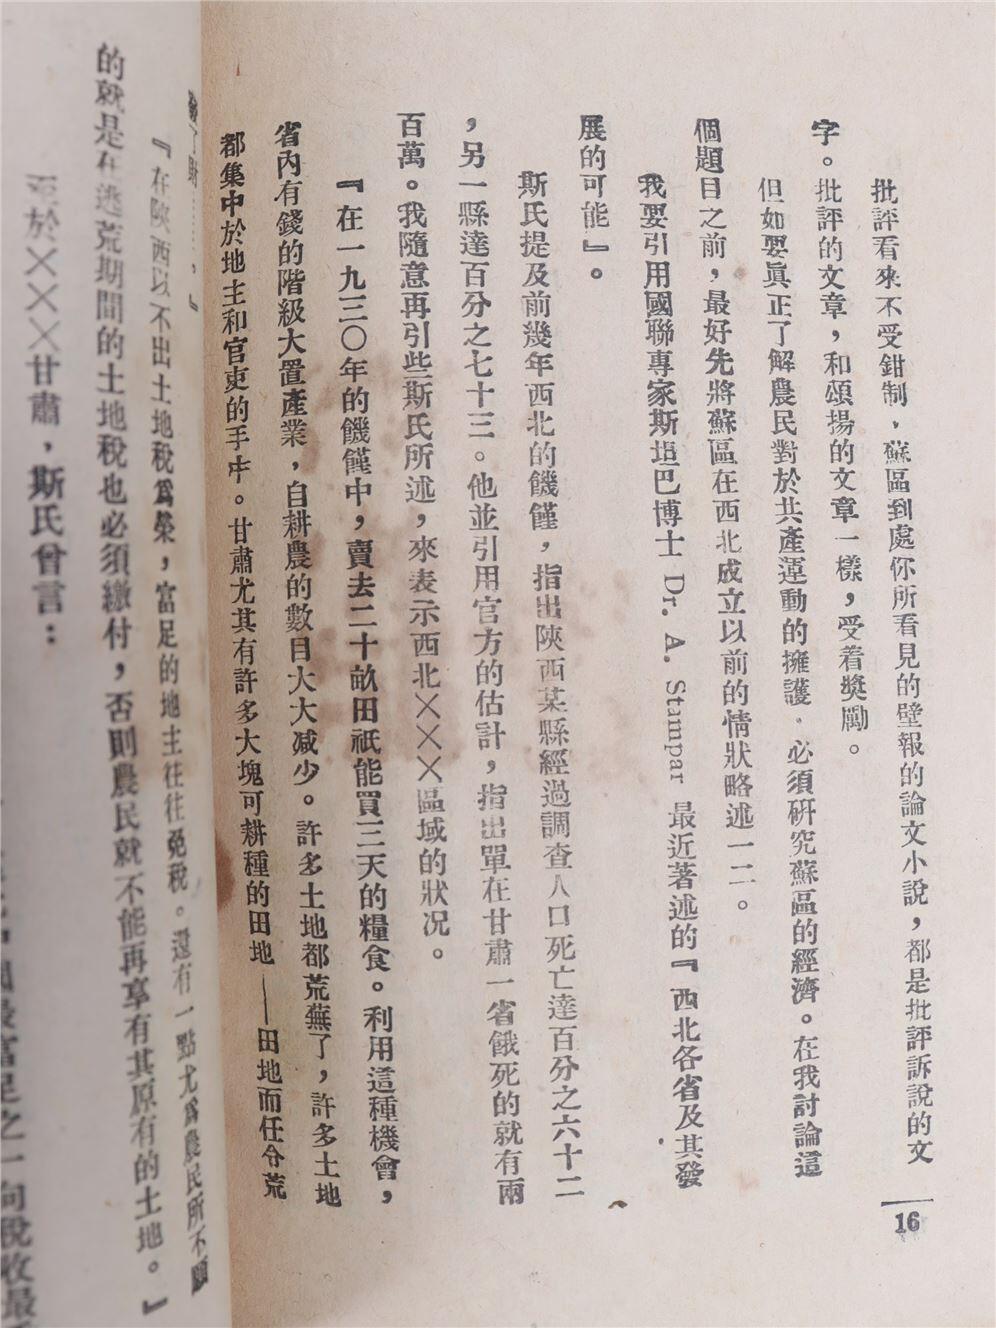 批評看來不受鉗制，蘇區到處你所看見的壁報的論文小說，都是批評訴說的文
字。批評的文章，和頌揚的文章一樣，受着奬勵。
但如要眞正了解農民對於共產運動的擁護．必須硏究蘇區的經濟。在我討論這
個題目之前，最好先將蘇區在西北成立以前的情狀略述一二。
我要引用國聯專家斯坦巴博士 Dr. A. Stampar 最近著述的『西北各省及其發
展的可能』。
斯氏提及前幾年西北的饑饉，指出陝西某縣經過調查人口死亡達百分之六十二
，另一縣達百分之七十三。他並引用官方的估計，指出單在甘肅一省餓死的就有兩
百萬。我隨意再引些斯氏所述，來表示西北×××區域的狀况。
『在一九三〇年的饑饉中，賣去二十畝田祇能買三天的糧食。利用這種機會，
省內有錢的階級大置產業，自耕農的數目大大减少。許多土地都荒蕪了，許多土地
都集中於地主和官吏的手中。甘肅尤其有許多大塊可耕種的田地——田地而任令荒
16
『在陝西以不出土地稅爲榮，富足的地主往往免稅。還有一點尤爲農民所不願
的就是在逃荒期間的土地稅也必須繳付，否則農民就不能再享有其原有的土地。』
於×××甘肅，斯氏曾言：
富足之一向稅收最